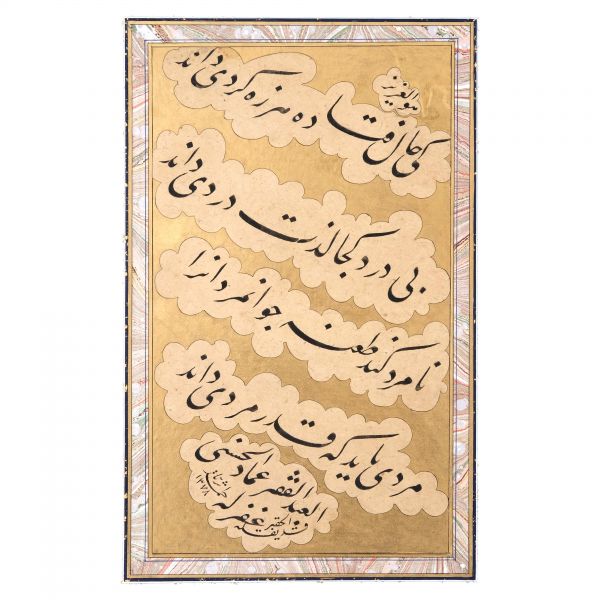 هو العزیز
کی حال فتاده هرزه گردی داند
بی درد کجا لذت دردی داند
نامرد کند طعنه جوانمردانرا
مردی باید که قدر مردی داند
العبد الفقیر عماد الحسنی
غفر له
الحقیر
۱۳۷۸